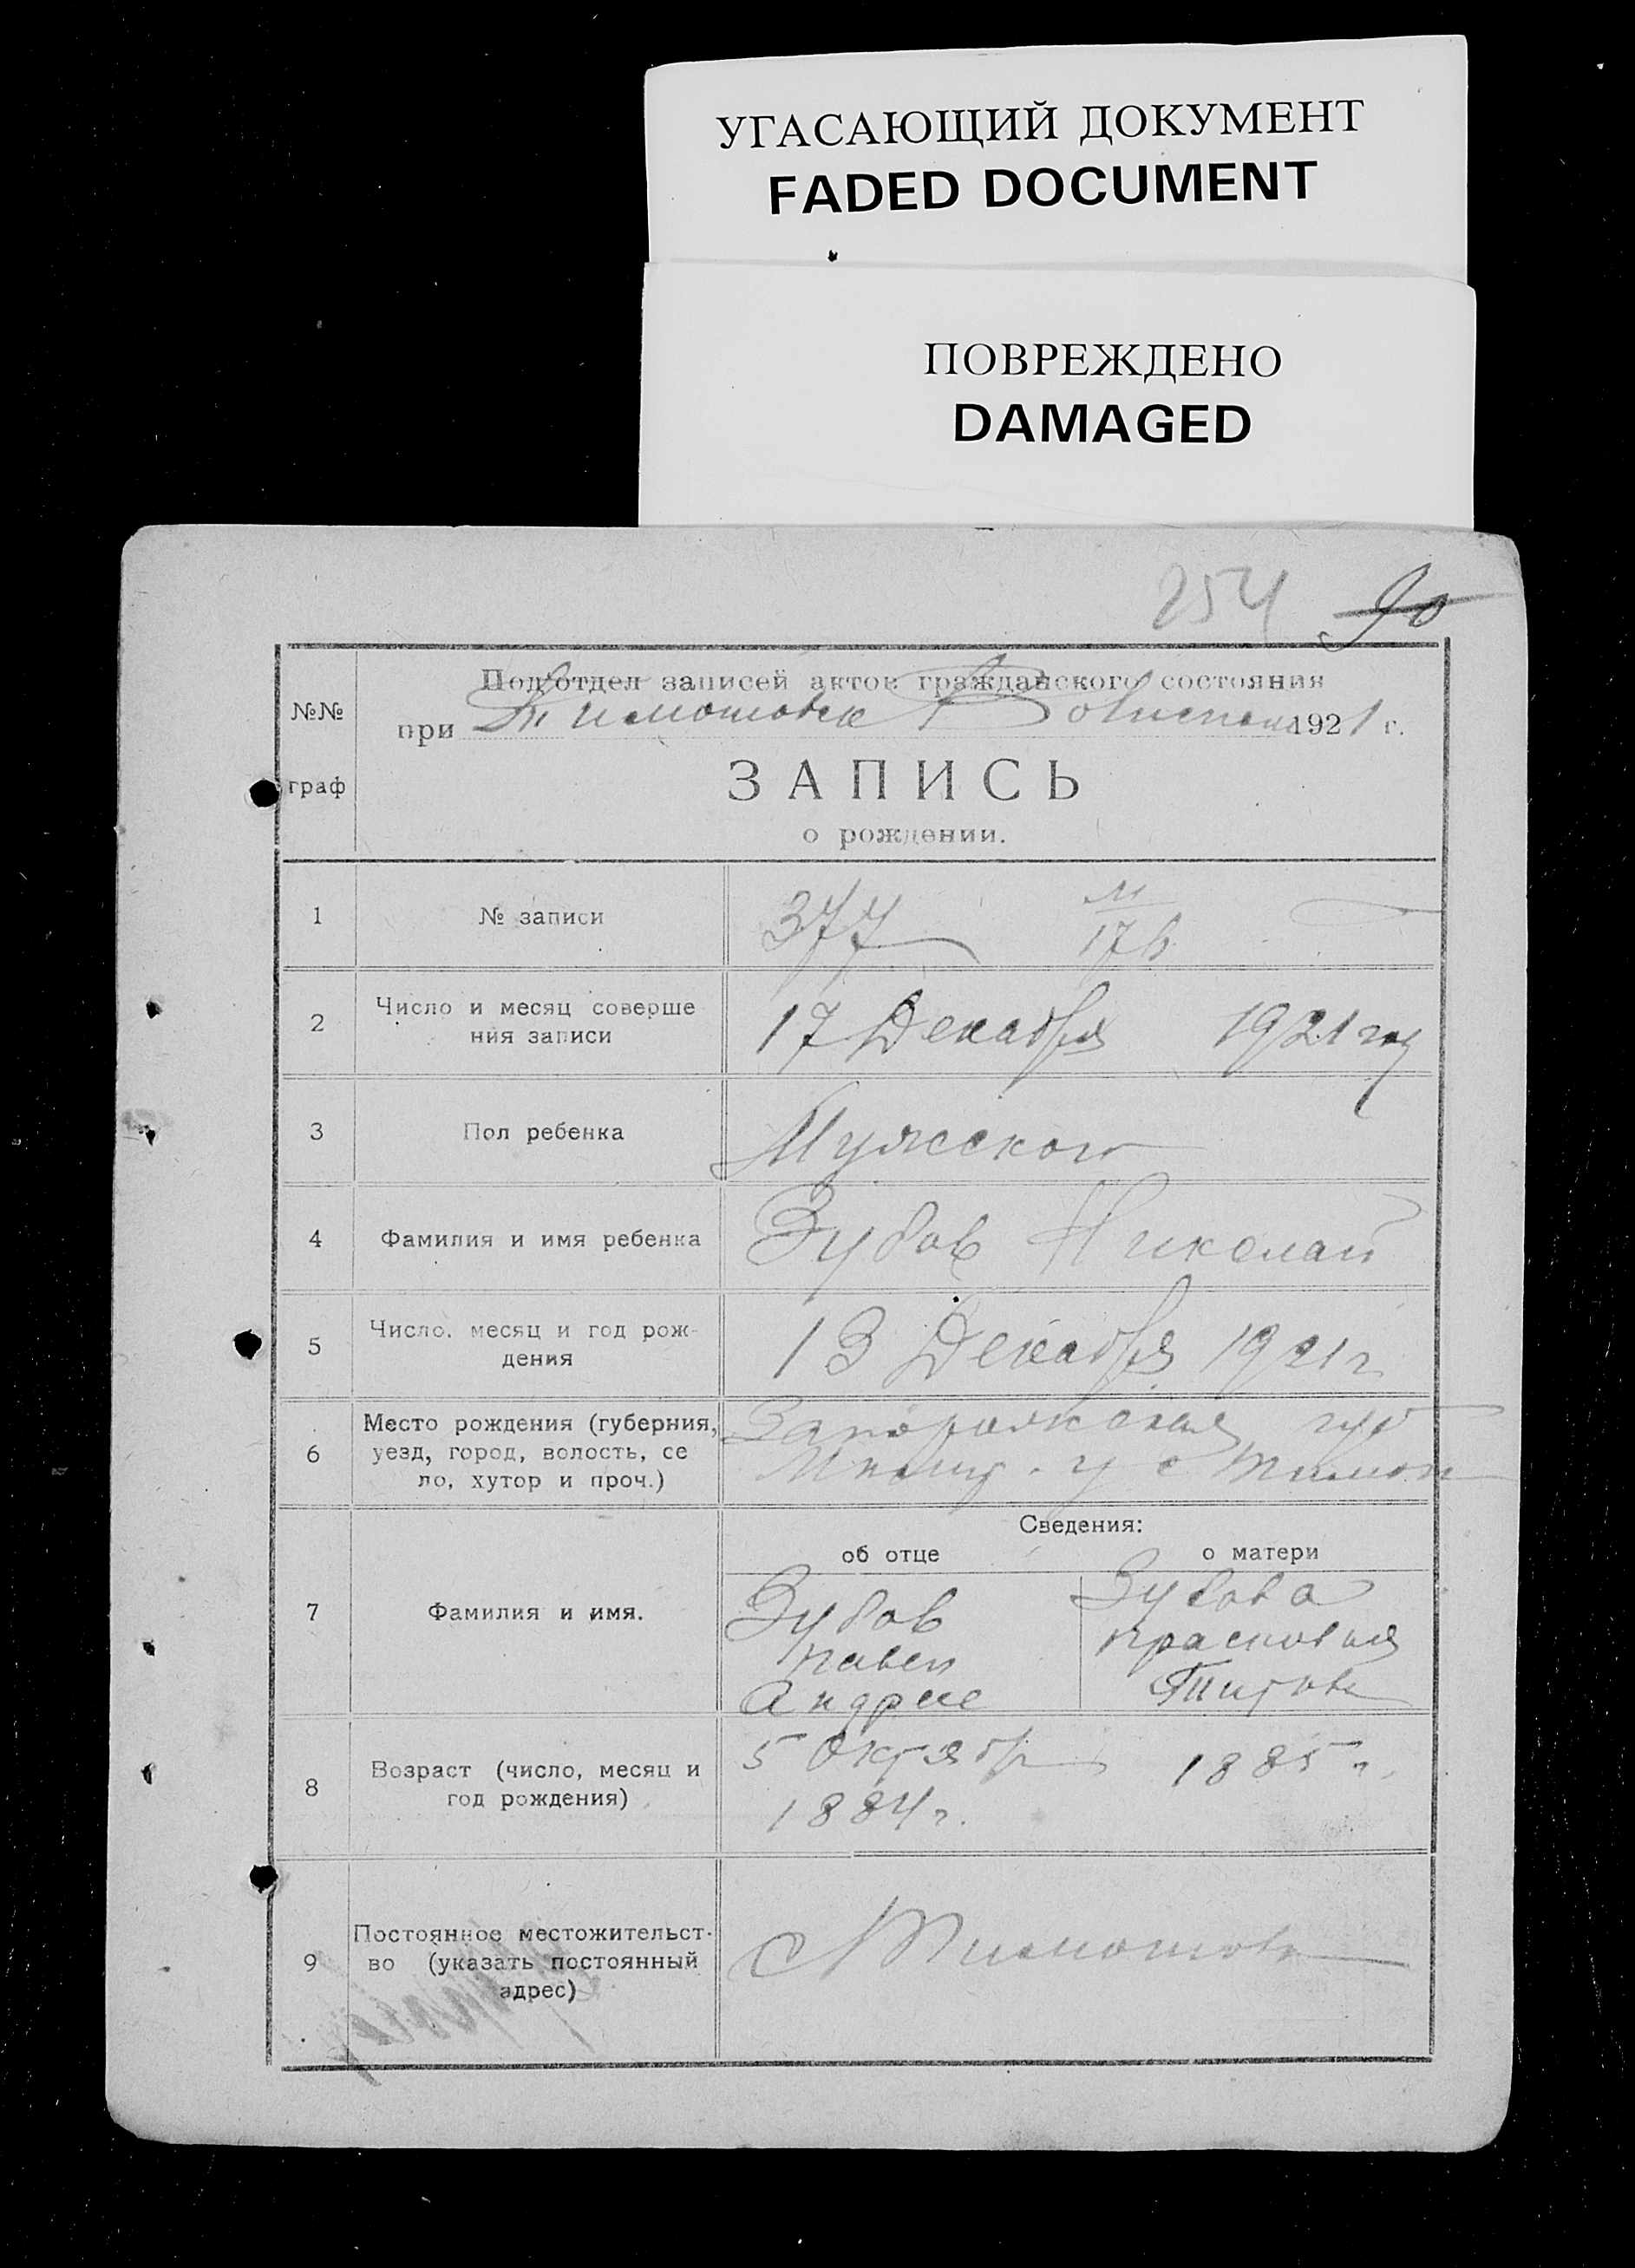 УГАСАЮЩИЙ ДОКУМЕНТ
FADED DOCUMENT
ПОВРЕЖДЕНО
DAMAGED
254 90
№№
граф
Под'отдел записей актов гражданского состояния
при 1921 г.
ЗАПИСЬ
о рождении.
1 № записи 377 М
176
2 Число и месяц соверше
ния записи
17 Декабря 1921 год
3 Пол ребенка Мужского
4 Фамилия и имя ребенка Зубов Николай
5 Число, месяц и год рож-
дения
13 Декабря 1921 г
6 Место рождения (губерния,
уезд, город, волость, се
ло, хутор и проч.)
Запорожская губ
у с Тимош
Сведения:
об отце о матери
7 Фамилия и имя.
Зубов
Павел
Андрее
Зубова
Прасковия
Титовн
8 Возраст (число, месяц и
год рождения)
5 Октябр
1884 г.
1885 г.
9 Постоянное местожительст-
во (указать постоянный
адрес)
с Тимошов